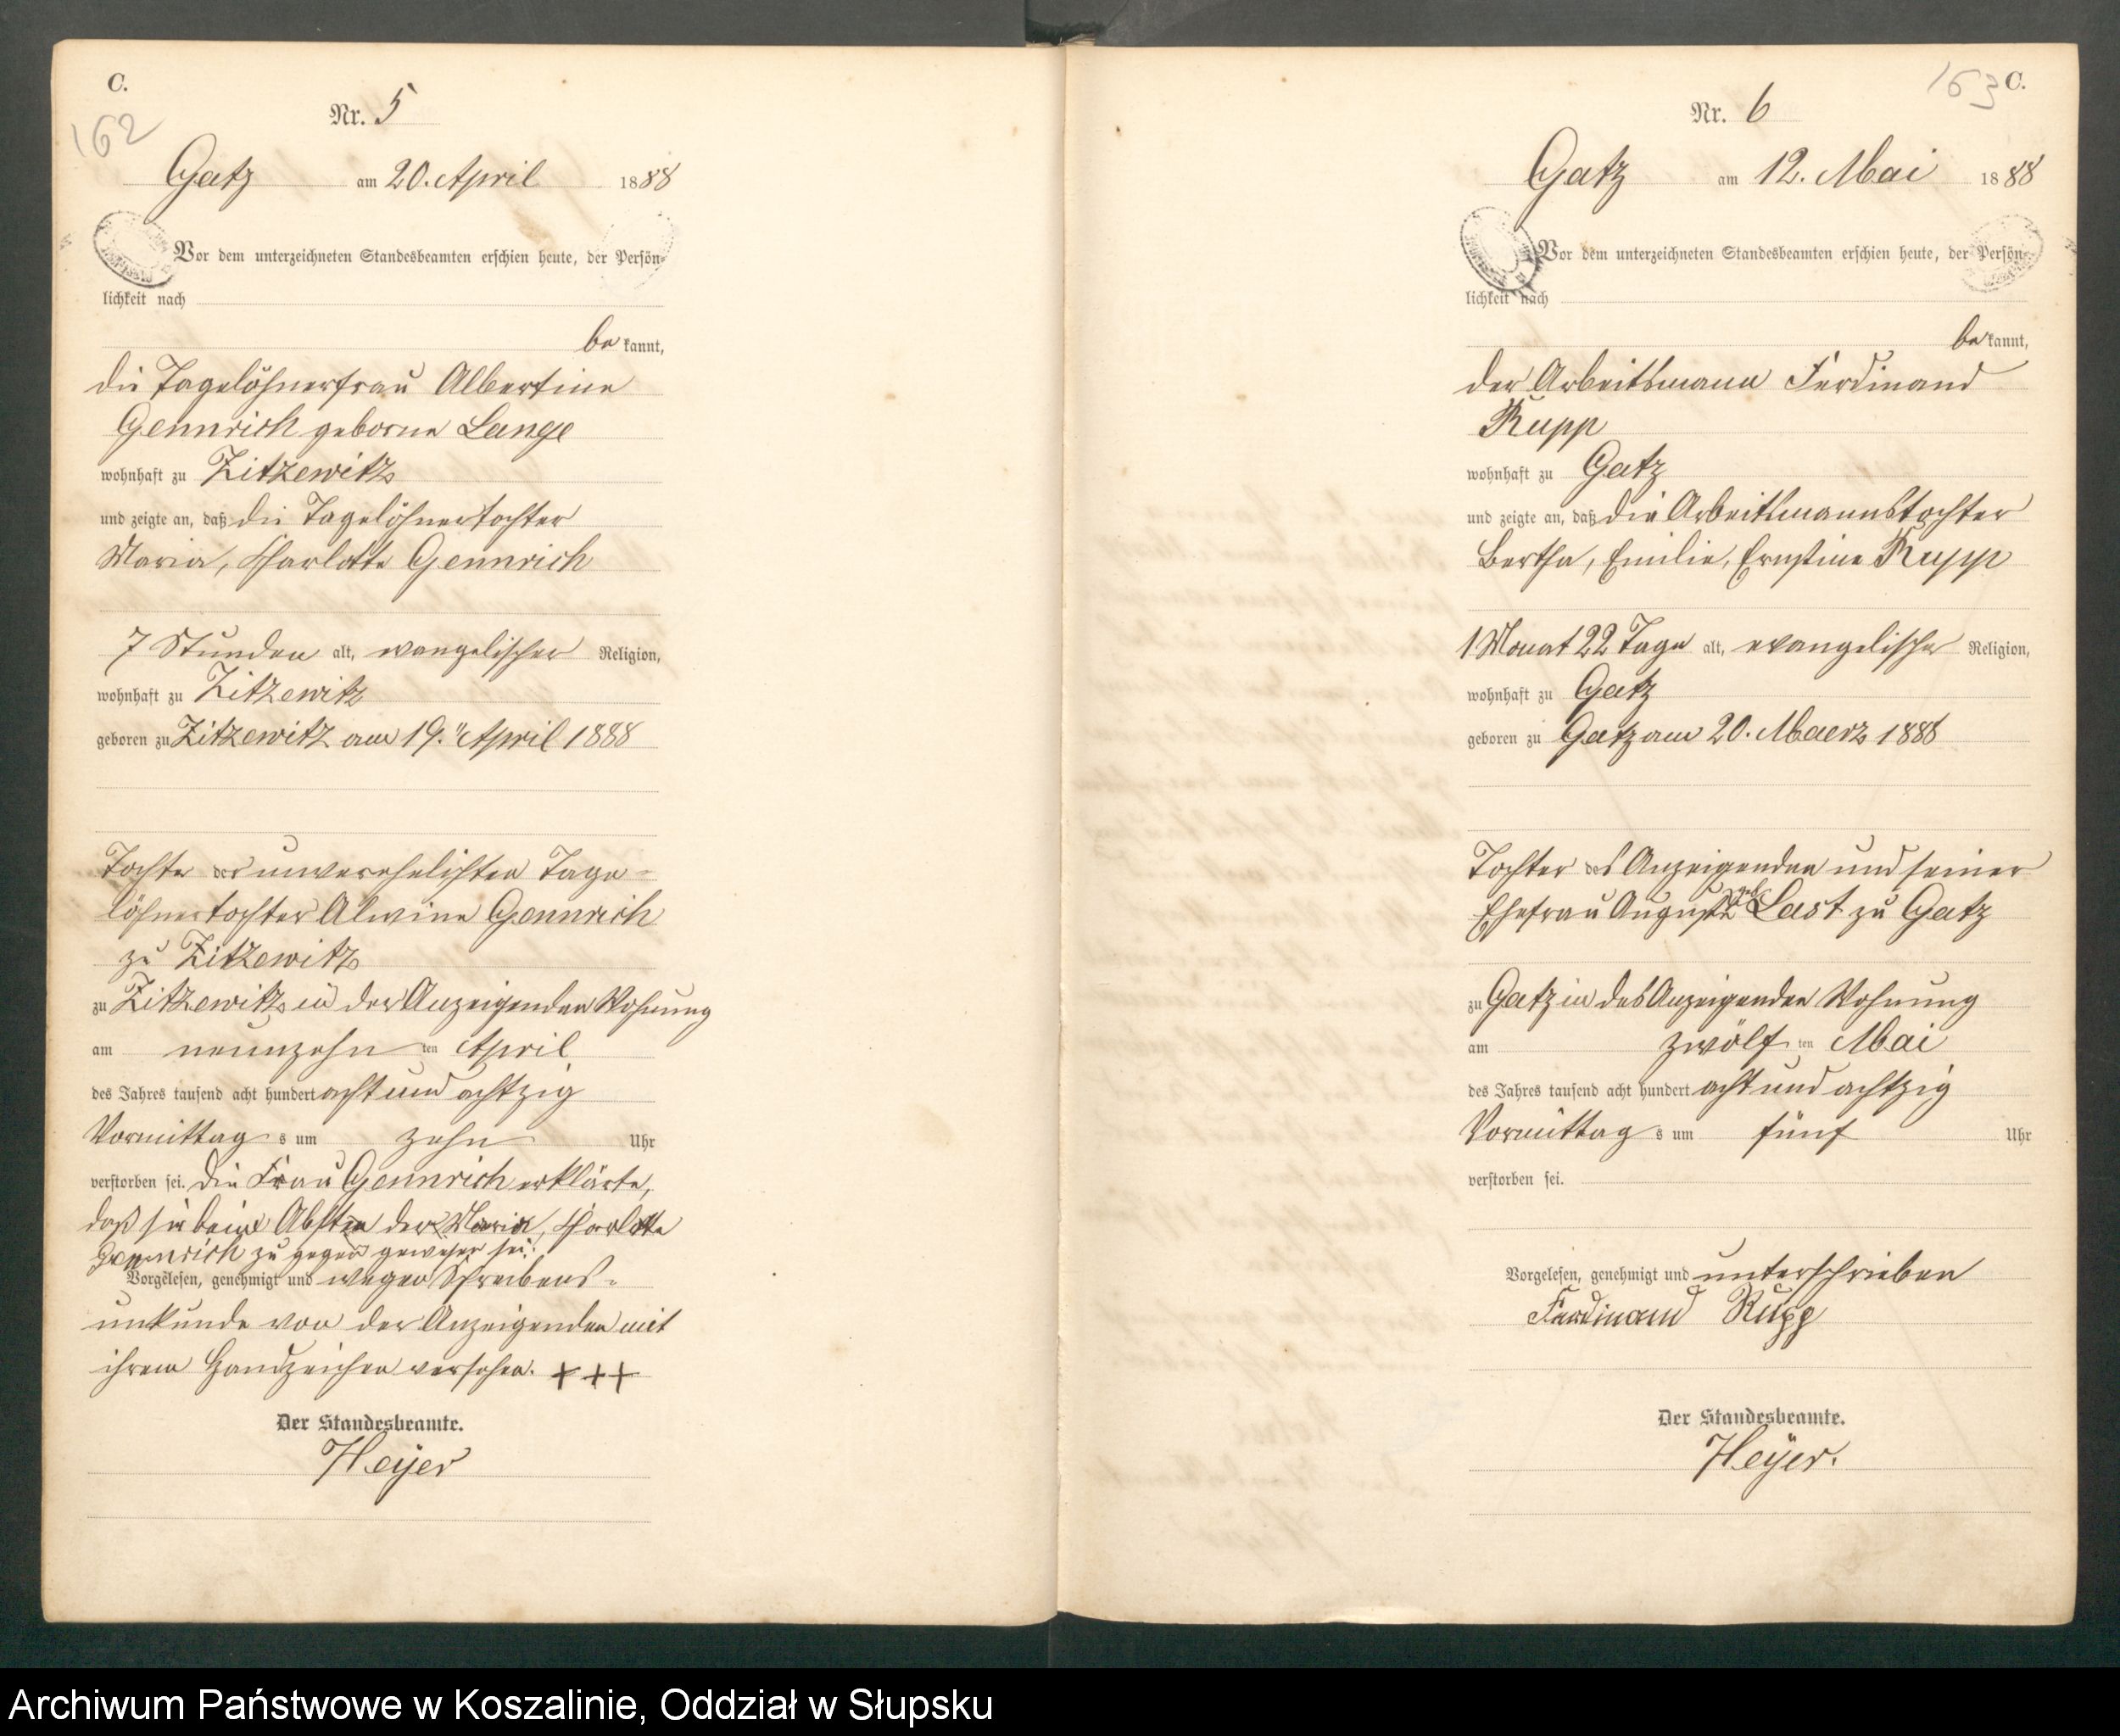 C.
162
Nr. 5
Gatz am 20. April 1888
Vor dem unterzeichneten Standesbeamten erschien heute, der Persön-
lichkeit nach
be kannt,
die Tagelöhnerfrau Albertine
Gennrich geborne Lange
wohnhaft zu Zitzewitz
und zeigte an, daß die Tagelöhnertochter
Maria, Charlotte Gennrich
7 Stunden alt, evangelischer Religion,
wohnhaft zu Zitzewitz
geboren zu Zitzewitz am 19. April 1888
Tochter der unverehelichten Tage-
löhnertochter Alwine Gennrich
zu Zitzewitz
zu Zitzewitz in der Anzeigenden Wohnung
am neunzehn ten April
des Jahres tausend acht hundert acht und achtzig
Vormittag s um zehn Uhr
verstorben sei. Die Frau Gennrich erklärte,
daß sie beim der Maria, Charlotte
Gennrich zu gegen gewesen sei.
Vorgelesen, genehmigt und wegen Schreibens-
unkunde von der Anzeigenden mit
ihrem Handzeichen versehen. +++
Der Standesbeamte.
Heyer
163 C.
Nr. 6
Gatz am 12. Mai 1888
Vor dem unterzeichneten Standesbeamten erschien heute, der Persön-
lichkeit nach
be kannt,
der Arbeitsmann Ferdinand
Rupp
wohnhaft zu Gatz
und zeigte an, daß die Arbeitsmannstochter
Bertha, Emilie, Ernstine Rupp
1 Monat 22 Tage alt, evangelischer Religion,
wohnhaft zu Gatz
geboren zu Gatz am 20. Maerz 1888
Tochter des Anzeigenden und seiner
Ehefrau Auguste geb. Last zu Gatz
zu Gatz in des Anzeigenden Wohnung
am zwölf ten Mai
des Jahres tausend acht hundert acht und achtzig
Vormittag s um fünf Uhr
verstorben sei.
Vorgelesen, genehmigt und unterschrieben
Ferdinand Rupp
Der Standesbeamte.
Heyer.
Archiwum Państwowe w Koszalinie, Oddział w Słupsku